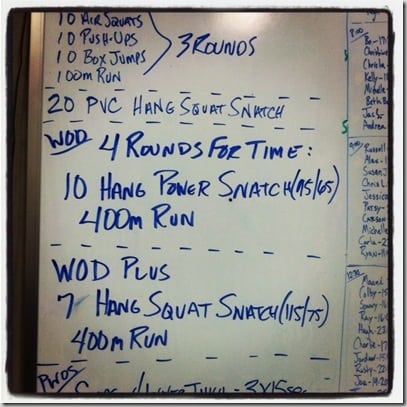 10 AIR SQUATS
10 PUSH-UPS
10 BOX JUMPS
100m RUN
3 ROUNDS
20 PVC HANG SQUAT SNATCH
WOD 4 ROUNDS FOR TIME:
10 HANG POWER SNATCH (95/65)
400m RUN
WOD PLUS
7 HANG SQUAT SNATCH (115/75)
400m RUN
PWOS
Christine
Christa
Kelly-
Michelle
Beth
Jack
Andrea
Russell
Alex-
Susan
Chris
Jessica
Patsy-
CARSON
Michelle
Carla-2
Ryan-
Colby-15
Sonny-16
Ray-16
Hank-23
Charlie-17
Jordan-15
Rusty-22
Joe-19